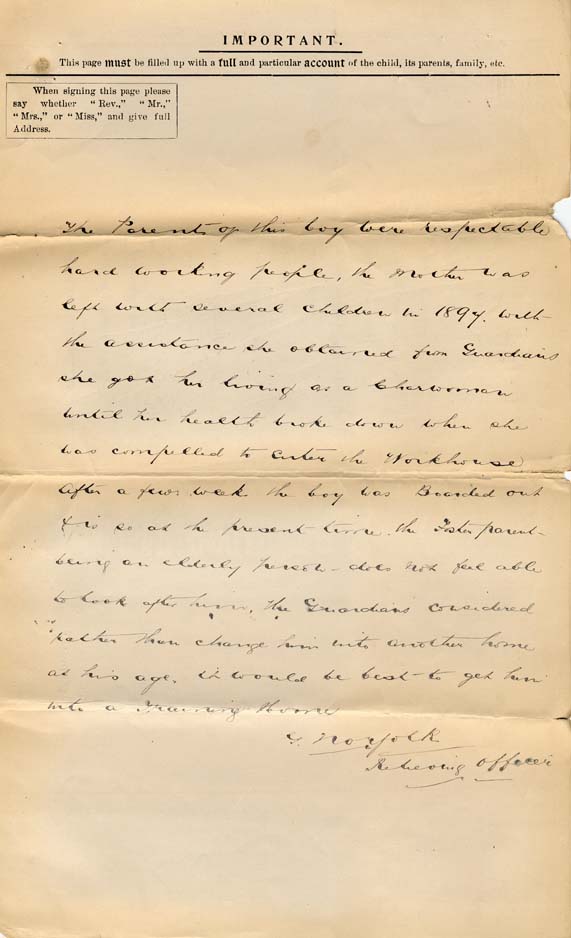 IMPORTANT.
This page must be filled up with a full and particular account of the child, its parents, family, etc.
When signing this page please
say whether "Rev.," "Mr.,"
"Mrs.," or "Miss," and give full
Address.
The Parents of this boy were respectable
hard working people, the Mother was
left with several children in 1897. with
the assistance she obtained from Guardians
she got her living as a Charwoman
until her health broke down when she
was compelled to enter the Workhouse
After a few weeks the boy was Boarded out
& is so at the present time. the Foster parent
being an elderly person does not feel able
to look after him, the Guardians considered
rather than change him into another home
at his age, it would be best to get him
into a Training Home
G. Norfolk
Relieving Officer